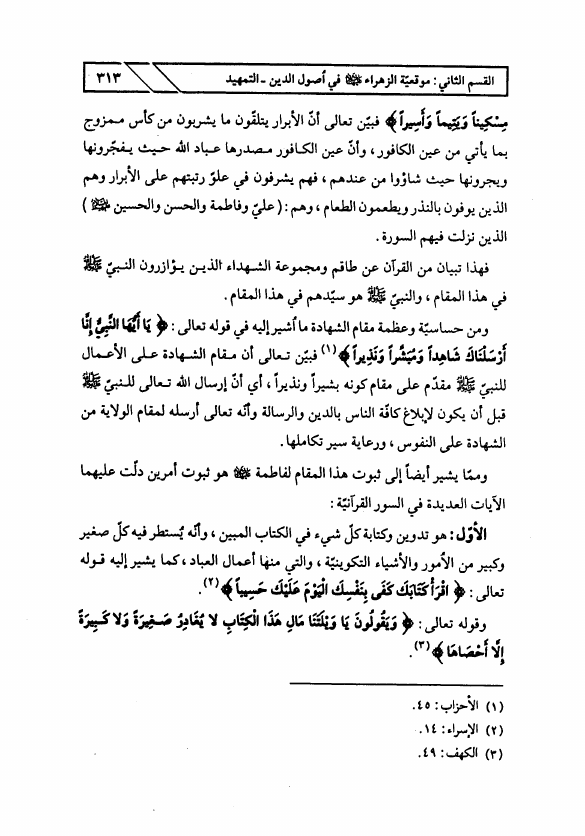 القسم الثاني: موقعيّة الزهراء ﷺ في أصول الدين - التمهيد
٣١٣
مِسْكِيناً وَيَتِيماً وَأَسِيراً ﴾ فبيّن تعالى أنّ الأبرار يتلقّون ما يشربون من كأس ممزوج
بما يأتي من عين الكافور، وأنّ عين الكافور مصدرها عباد الله حيث يفجّرونها
ويجرونها حيث شاؤوا من عندهم، فهم يشرفون في علوّ رتبتهم على الأبرار وهم
الذين يوفون بالنذر ويطعمون الطعام، وهم: (عليّ وفاطمة والحسن والحسين ﷺ)
الذين نزلت فيهم السورة.
فهذا تبيان من القرآن عن طاقم ومجموعة الشهداء الذين يؤازرون النبيّ ﷺ
في هذا المقام، والنبيّ ﷺ هو سيّدهم في هذا المقام.
ومن حساسيّة وعظمة مقام الشهادة ما أشير إليه في قوله تعالى: ﴿ يَا أَيُّهَا النَّبِيُّ إِنَّا
أَرْسَلْنَاكَ شَاهِداً وَمُبَشِّراً وَنَذِيراً ﴾(١) فبيّن تعالى أن مقام الشهادة على الأعمال
للنبيّ ﷺ مقدّم على مقام كونه بشيراً ونذيراً، أي أنّ إرسال الله تعالى للنبيّ ﷺ
قبل أن يكون لإبلاغ كافّة الناس بالدين والرسالة وأنّه تعالى أرسله لمقام الولاية من
الشهادة على النفوس، ورعاية سير تكاملها.
وممّا يشير أيضاً إلى ثبوت هذا المقام لفاطمة ﷺ هو ثبوت أمرين دلّت عليهما
الآيات العديدة في السور القرآنيّة:
الأوّل: هو تدوين وكتابة كلّ شيء في الكتاب المبين، وأنّه يُستطر فيه كلّ صغير
وكبير من الأمور والأشياء التكوينيّة، والتي منها أعمال العباد، كما يشير إليه قوله
تعالى: ﴿ اقْرَأْ كِتَابَكَ كَفَى بِنَفْسِكَ الْيَوْمَ عَلَيْكَ حَسِيباً ﴾(٢).
وقوله تعالى: ﴿ وَيَقُولُونَ يَا وَيْلَتَنَا مَالِ هَذَا الْكِتَابِ لا يُغَادِرُ صَغِيرَةً وَلا كَبِيرَةً
إِلَّا أَحْصَاهَا ﴾(٣).
(١) الأحزاب: ٤٥.
(٢) الإسراء: ١٤.
(٣) الكهف: ٤٩.